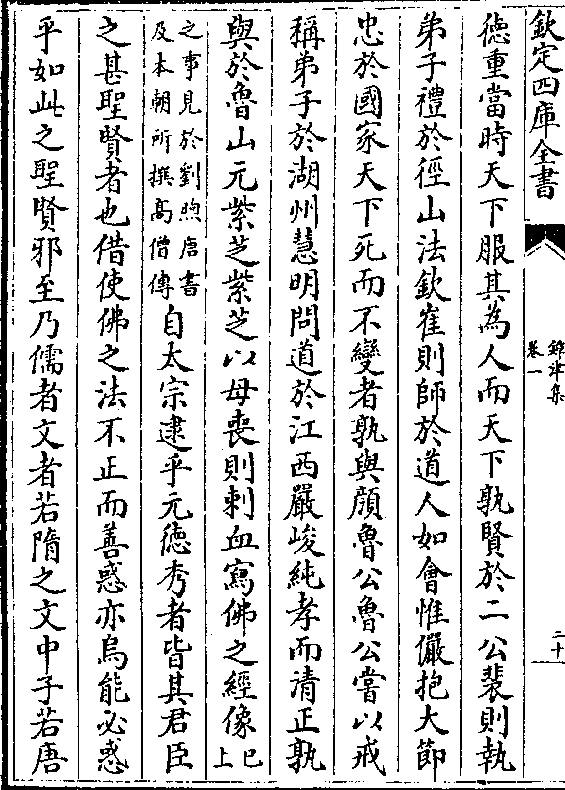 欽定四庫全書
鐔津集
卷一
二十
德重當時天下服其為人而天下孰賢於二公裴則執
弟子禮於徑山法欽崔則師於道人如會惟儼抱大節
忠於國家天下死而不變者孰與顔魯公魯公嘗以戒
稱弟子於湖州慧明問道於江西嚴峻純孝而清正孰
與於魯山元紫芝紫芝以母喪則刺血寫佛之經像已上
之事見於劉煦唐書
及本朝所撰髙僧傳自太宗逮乎元德秀者皆其君臣
之甚聖賢者也借使佛之法不正而善惑亦烏能必惑
乎如此之聖賢邪至乃儒者文者若隋之文中子若唐